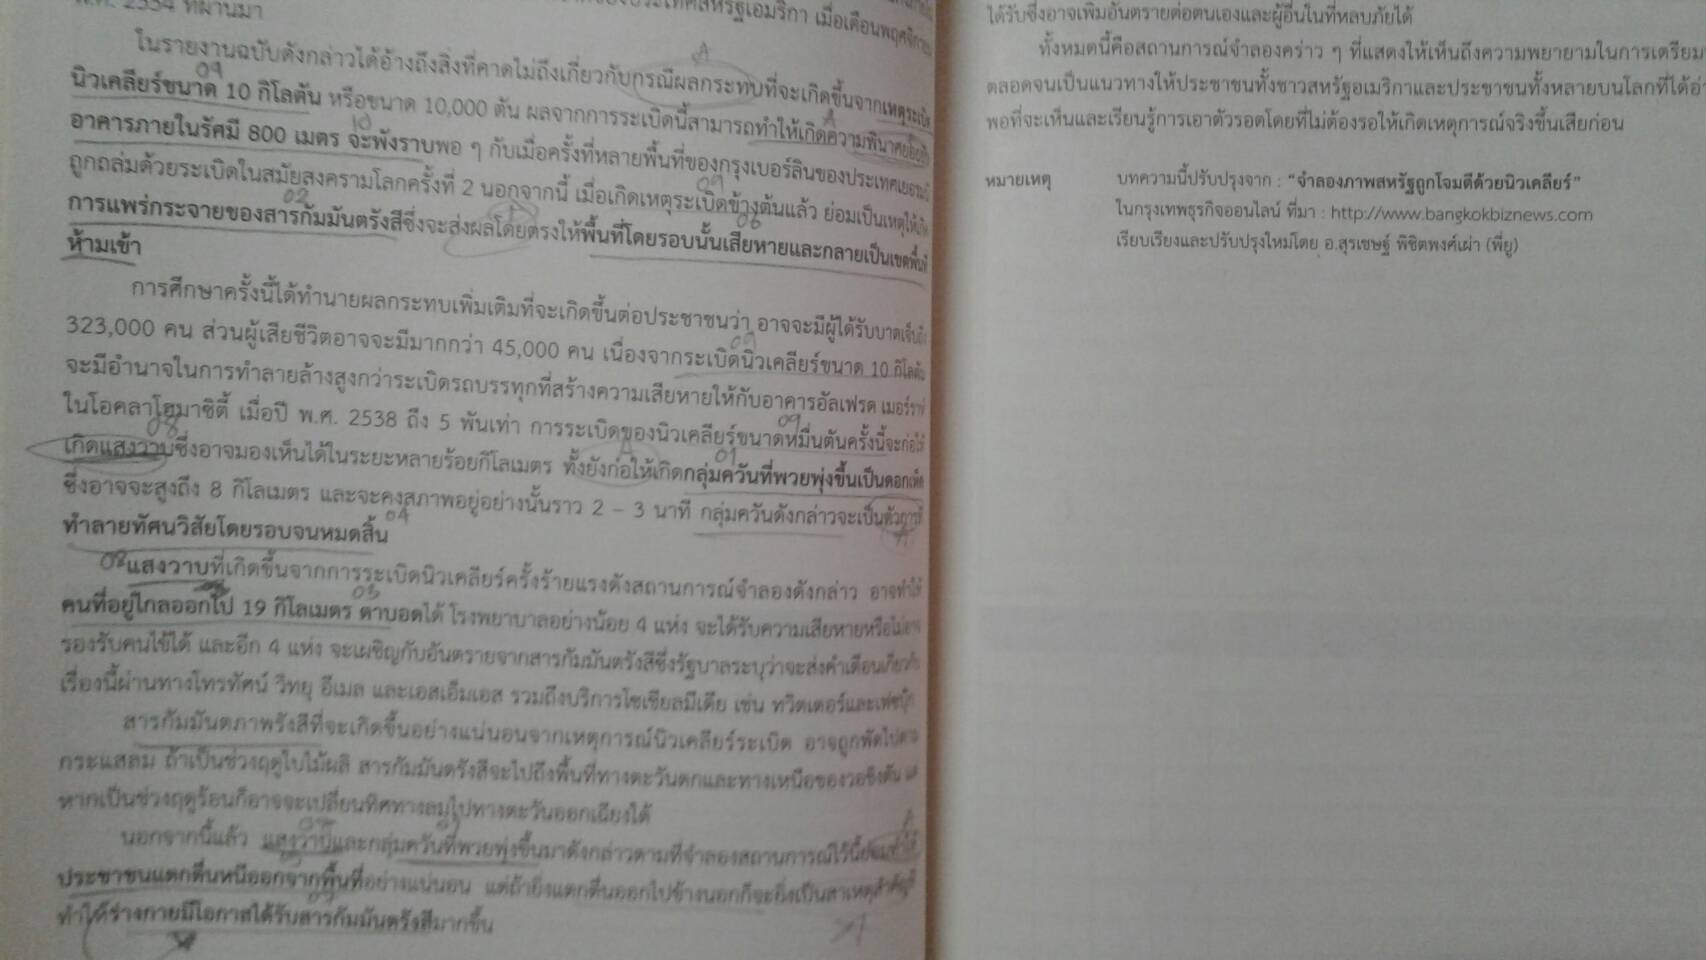 พ.ศ. 2554 ที่ผ่านมา
ของประเทศสหรัฐเอมริกา เมื่อเดือนพฤศจิกายน
ในรายงานฉบับดังกล่าวได้อ้างถึงสิ่งที่คาดไม่ถึงเกี่ยวกับกรณีผลกระทบที่จะเกิดขึ้นจากเหตุระเบิด
นิวเคลียร์ขนาด 10 กิโลตัน หรือขนาด 10,000 ตัน ผลจากการระเบิดนี้สามารถทำให้เกิดความพินาศย่อยยับ
อาคารภายในรัศมี 800 เมตร จะพังราบพอ ๆ กับเมื่อครั้งที่หลายพื้นที่ของกรุงเบอร์ลินของประเทศเยอรมนี
ถูกถล่มด้วยระเบิดในสมัยสงครามโลกครั้งที่ 2 นอกจากนี้ เมื่อเกิดเหตุระเบิดข้างต้นแล้ว ย่อมเป็นเหตุให้เกิด
การแพร่กระจายของสารกัมมันตรังสีซึ่งจะส่งผลโดยตรงให้พื้นที่โดยรอบนั้นเสียหายและกลายเป็นเขตพื้นที่
ห้ามเข้า
การศึกษาครั้งนี้ได้ทำนายผลกระทบเพิ่มเติมที่จะเกิดขึ้นต่อประชาชนว่า อาจจะมีผู้ได้รับบาดเจ็บถึง
323,000 คน ส่วนผู้เสียชีวิตอาจจะมีมากกว่า 45,000 คน เนื่องจากระเบิดนิวเคลียร์ขนาด 10 กิโลตัน
จะมีอำนาจในการทำลายล้างสูงกว่าระเบิดรถบรรทุกที่สร้างความเสียหายให้กับอาคารอัลเฟรด เมอร์ราห์
ในโอคลาโฮมาซิตี้ เมื่อปี พ.ศ. 2538 ถึง 5 พันเท่า การระเบิดของนิวเคลียร์ขนาดหมื่นตันครั้งนี้จะก่อให้
เกิดแสงวาบซึ่งอาจมองเห็นได้ในระยะหลายร้อยกิโลเมตร ทั้งยังก่อให้เกิดกลุ่มควันที่พวยพุ่งขึ้นเป็นดอกเห็ด
ซึ่งอาจจะสูงถึง 8 กิโลเมตร และจะคงสภาพอยู่อย่างนั้นราว 2 – 3 นาที กลุ่มควันดังกล่าวจะเป็นตัวการที่
ทำลายทัศนวิสัยโดยรอบจนหมดสิ้น
แสงวาบที่เกิดขึ้นจากการระเบิดนิวเคลียร์ครั้งร้ายแรงดังสถานการณ์จำลองดังกล่าว อาจทำให้
คนที่อยู่ไกลออกไป 19 กิโลเมตร ตาบอดได้ โรงพยาบาลอย่างน้อย 4 แห่ง จะได้รับความเสียหายหรือไม่อาจ
รองรับคนไข้ได้ และอีก 4 แห่ง จะเผชิญกับอันตรายจากสารกัมมันตรังสีซึ่งรัฐบาลระบุว่าจะส่งคำเตือนเกี่ยวกับ
เรื่องนี้ผ่านทางโทรทัศน์ วิทยุ อีเมล และเอสเอ็มเอส รวมถึงบริการโซเชียลมีเดีย เช่น ทวิตเตอร์และเฟซบุ๊ก
สารกัมมันตภาพรังสีที่จะเกิดขึ้นอย่างแน่นอนจากเหตุการณ์นิวเคลียร์ระเบิด อาจถูกพัดไปตาม
กระแสลม ถ้าเป็นช่วงฤดูใบไม้ผลิ สารกัมมันตรังสีจะไปถึงพื้นที่ทางตะวันตกและทางเหนือของวอชิงตัน แต่
หากเป็นช่วงฤดูร้อนก็อาจจะเปลี่ยนทิศทางลมไปทางตะวันออกเฉียงใต้
นอกจากนี้แล้ว แสงวาบและกลุ่มควันที่พวยพุ่งขึ้นมาดังกล่าวตามที่จำลองสถานการณ์ไว้นี้ย่อมทำให้
ประชาชนแตกตื่นหนีออกจากพื้นที่อย่างแน่นอน แต่ถ้ายิ่งแตกตื่นออกไปข้างนอกก็จะยิ่งเป็นสาเหตุสำคัญที่
ทำให้ร่างกายมีโอกาสได้รับสารกัมมันตรังสีมากขึ้น
ได้รับซึ่งอาจเพิ่มอันตรายต่อตนเองและผู้อื่นในที่หลบภัยได้
ทั้งหมดนี้คือสถานการณ์จำลองคร่าว ๆ ที่แสดงให้เห็นถึงความพยายามในการเตรียม
ตลอดจนเป็นแนวทางให้ประชาชนทั้งชาวสหรัฐอเมริกาและประชาชนทั้งหลายบนโลกที่ได้อ่าน
พอที่จะเห็นและเรียนรู้การเอาตัวรอดโดยที่ไม่ต้องรอให้เกิดเหตุการณ์จริงขึ้นเสียก่อน
หมายเหตุ บทความนี้ปรับปรุงจาก : “จำลองภาพสหรัฐถูกโจมตีด้วยนิวเคลียร์”
ในกรุงเทพธุรกิจออนไลน์ ที่มา : http://www.bangkokbiznews.com
เรียบเรียงและปรับปรุงใหม่โดย อ.สุรเชษฐ์ พิชิตพงศ์เผ่า (พี่ยู)